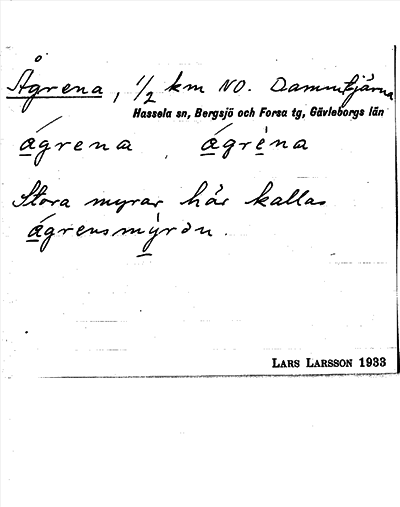 Ågrena, 1/2 km NO. Dammtjärna
Hassela sn, Bergsjö och Forsa tg, Gävleborgs län
ágrena, ágrèna
Stora myrar här kallas
ágrensmýrọn.
LARS LARSSON 1933